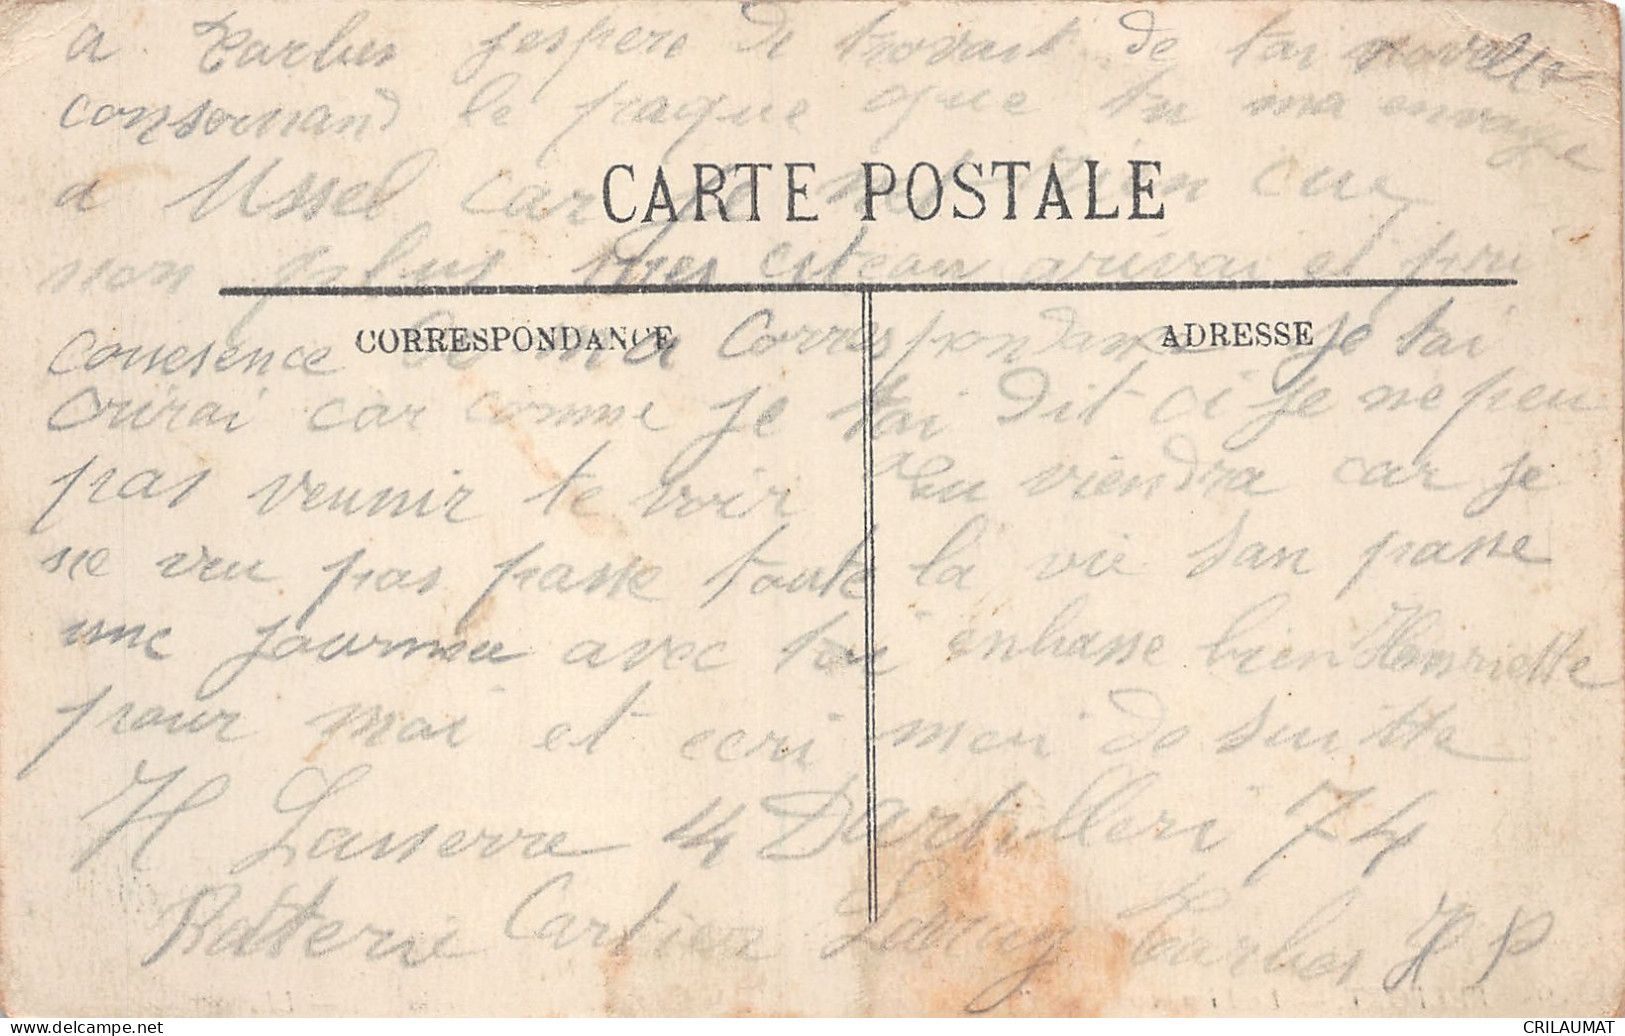 a Tarbes jespere de trovait de tai novelle
consernand le paque que tu ma envoye
a Ussel car je rien cue
CARTE POSTALE
non plus mes citeau arivai et pri
CORRESPONDANCE
ADRESSE
conesence de ma Correspondance je tai
Crirai car comme je tai dit ci je ne peu
pas veunir te voir tu viendra car je
ne veu pas passe toute la vie san passe
une journeu avec toi enbasse bien Henriette
pour moi et ecri moi de suitte
H Lasserre 14 Dartilleri 74
Batterie Cartier Tarbes H P
CRILAUMAT